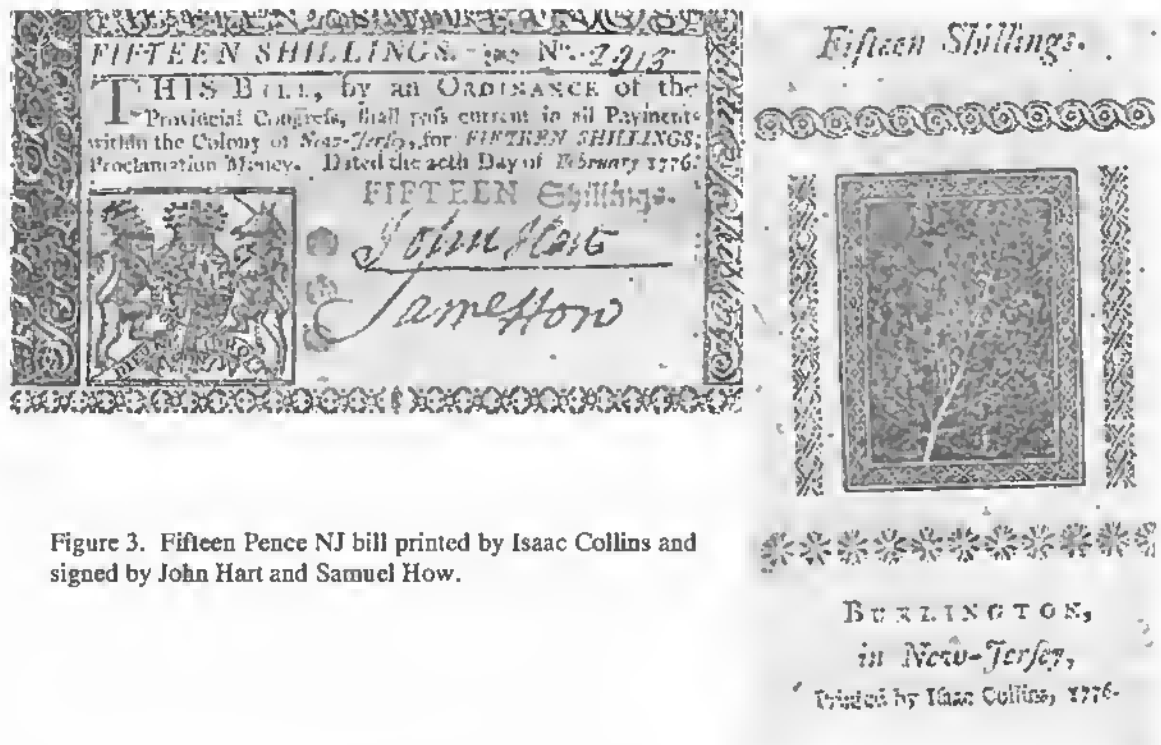 FIFTEEN SHILLINGS. No. 2913
THIS BILL, by an ORDINANCE of the
Provincial Congreſs, ſhall paſs current in all Payments
within the Colony of New-Jerſey, for FIFTEEN SHILLINGS,
Proclamation Money. Dated the 20th Day of February 1776.
FIFTEEN Shillings.
John Hart
Sam How
Fifteen Shillings.
BURLINGTON,
in New-Jerſey,
Printed by Iſaac Collins, 1776.
Figure 3. Fifteen Pence NJ bill printed by Isaac Collins and
signed by John Hart and Samuel How.